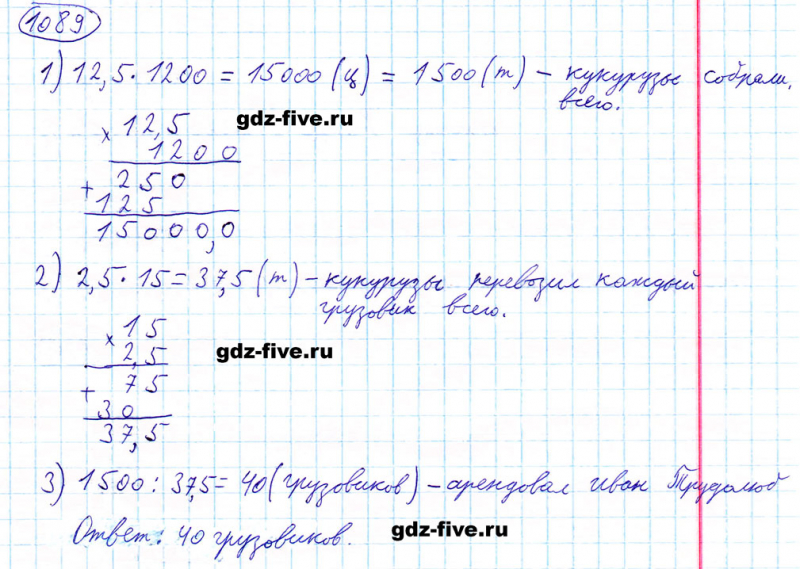 1089
1) 12,5 · 1200 = 15000 (ц) = 1500 (т) – кукурузы собрали
всего.
gdz-five.ru
× 12,5
1200
+ 250
125
15000,0
2) 2,5 · 15 = 37,5 (т) – кукурузы перевозил каждый
грузовик всего.
× 15
2,5
gdz-five.ru
+ 75
30
37,5
3) 1500 : 37,5 = 40 (грузовиков) – арендовал Иван Трудолюб
Ответ: 40 грузовиков.
gdz-five.ru